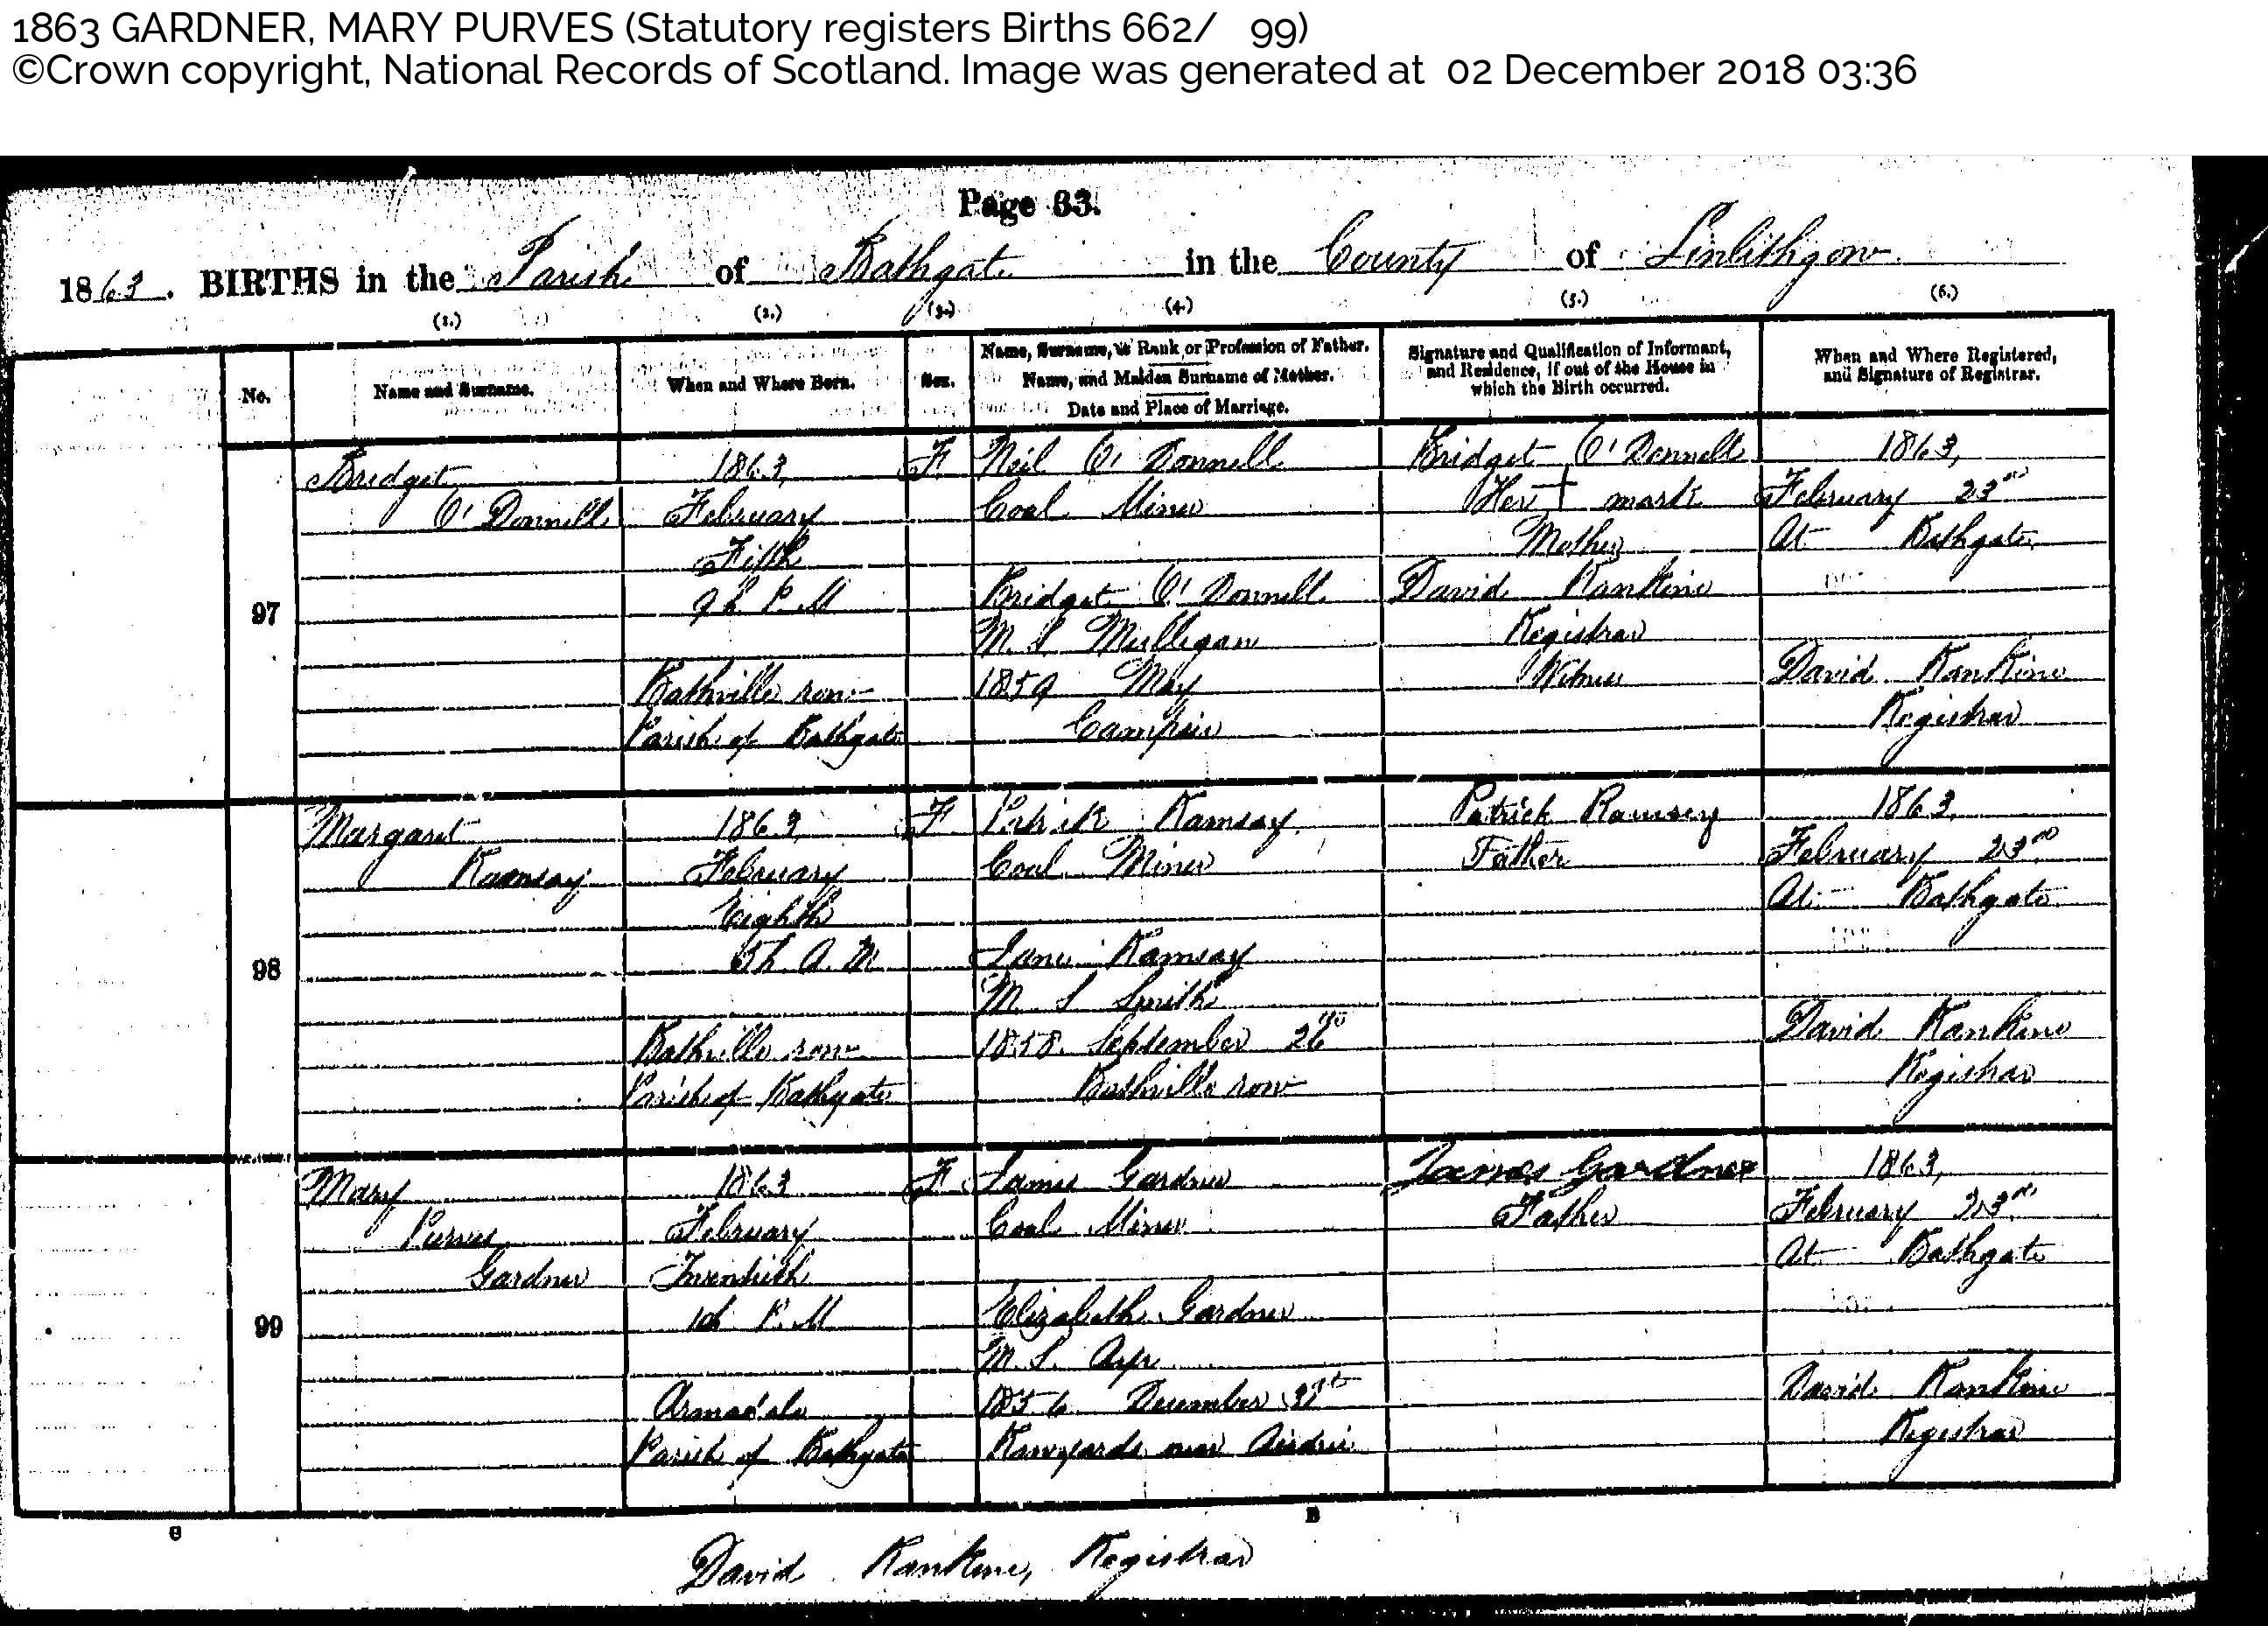 1863 GARDNER, MARY PURVES (Statutory registers Births 662/ 99)
©Crown copyright, National Records of Scotland. Image was generated at 02 December 2018 03:36
Page 33.
1863. BIRTHS in the Parish of Bathgate in the County of Linlithgow
(1.) (2.) (3.) (4.) (5.) (6.)
No.
Name and Surname.
When and Where Born.
Sex.
Name, Surname, & Rank or Profession of Father.
Name, and Maiden Surname of Mother.
Date and Place of Marriage.
Signature and Qualification of Informant,
and Residence, if out of the House in
which the Birth occurred.
When and Where Registered,
and Signature of Registrar.
97
Bridget
O'Donnell
1863,
February
Fifth
9h P.M
Bathville row
Parish of Bathgate
F
Neil O'Donnell
Coal Miner
Bridget O'Donnell
M.S Mulligan
1859 May
Campsie
Bridget O'Donnell
Her + mark
Mother
David Rankine
Registrar
Witness
1863,
February 23rd
At Bathgate
David Rankine
Registrar
98
Margaret
Ramsay
1863,
February
Eighth
5h A.M
Bathville row
Parish of Bathgate
F
Patrick Ramsay
Coal Miner
Jane Ramsay
M.S Smith
1858 September
Bathville row
Patrick Ramsey
Father
1863,
February 23rd
At Bathgate
David Rankine
Registrar
99
Mary
Purves
Gardner
1863
February
Twentieth
1h P.M
Armadale
Parish of Bathgate
F
James Gardner
Coal Miner
Elizabeth Gardner
M.S. Ayr
1856 December 31st
Rawyards near Airdrie
James Gardner
Father
1863,
February 23rd
At Bathgate
David Rankine
Registrar
B
David Rankine, Registrar